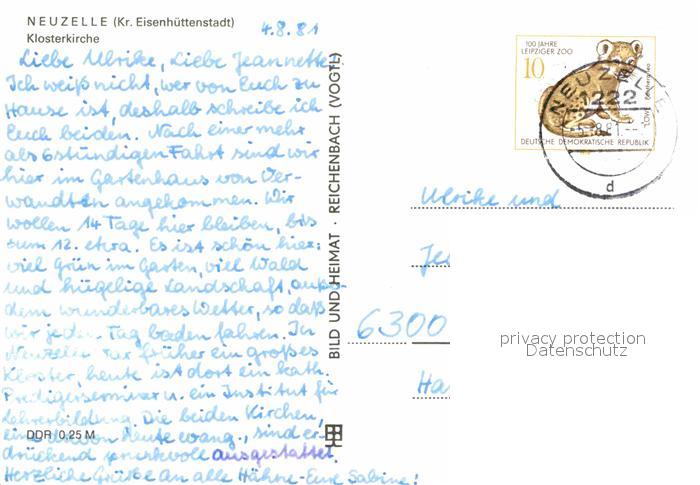 NEUZELLE (Kr. Eisenhüttenstadt)
Klosterkirche
4.8.81
Liebe Ulrike, Liebe Jeannette,
Ich weiß nicht, wer von Euch zu
Hause ist, deshalb schreibe ich
Euch beiden. Nach einer mehr
als 6stündigen Fahrt sind wir
hier im Gartenhaus von Ver-
wandten angekommen. Wir
wollen 14 Tage hier bleiben, bis
zum 12. etwa. Es ist schön hier:
viel Grün im Garten, viel Wald
und hügelige Landschaft, außer-
dem wunderbares Wetter, so daß
wir jeden Tag baden fahren. In
Neuzelle war früher ein großes
Kloster, heute ist dort ein kath.
Predigerseminar u. ein Institut für
Lehrerbildung. Die beiden Kirchen,
eine davon heute evang., sind er-
drückend prunkvoll ausgestattet.
Herzliche Grüße an alle Hähne - Eure Sabine!
DDR 0,25 M
BILD UND HEIMAT · REICHENBACH (VOGTL)
100 JAHRE
LEIPZIGER ZOO
10
DEUTSCHE DEMOKRATISCHE REPUBLIK
NEUZELLE
1222
-5.8.81
d
Ulrike und
Je
6300
Ha
privacy protection
Datenschutz